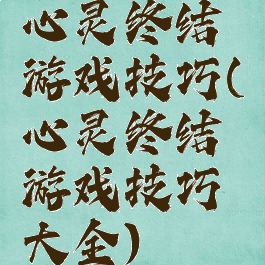 心灵终结
游戏技巧(
心灵终结
游戏技巧
大全)